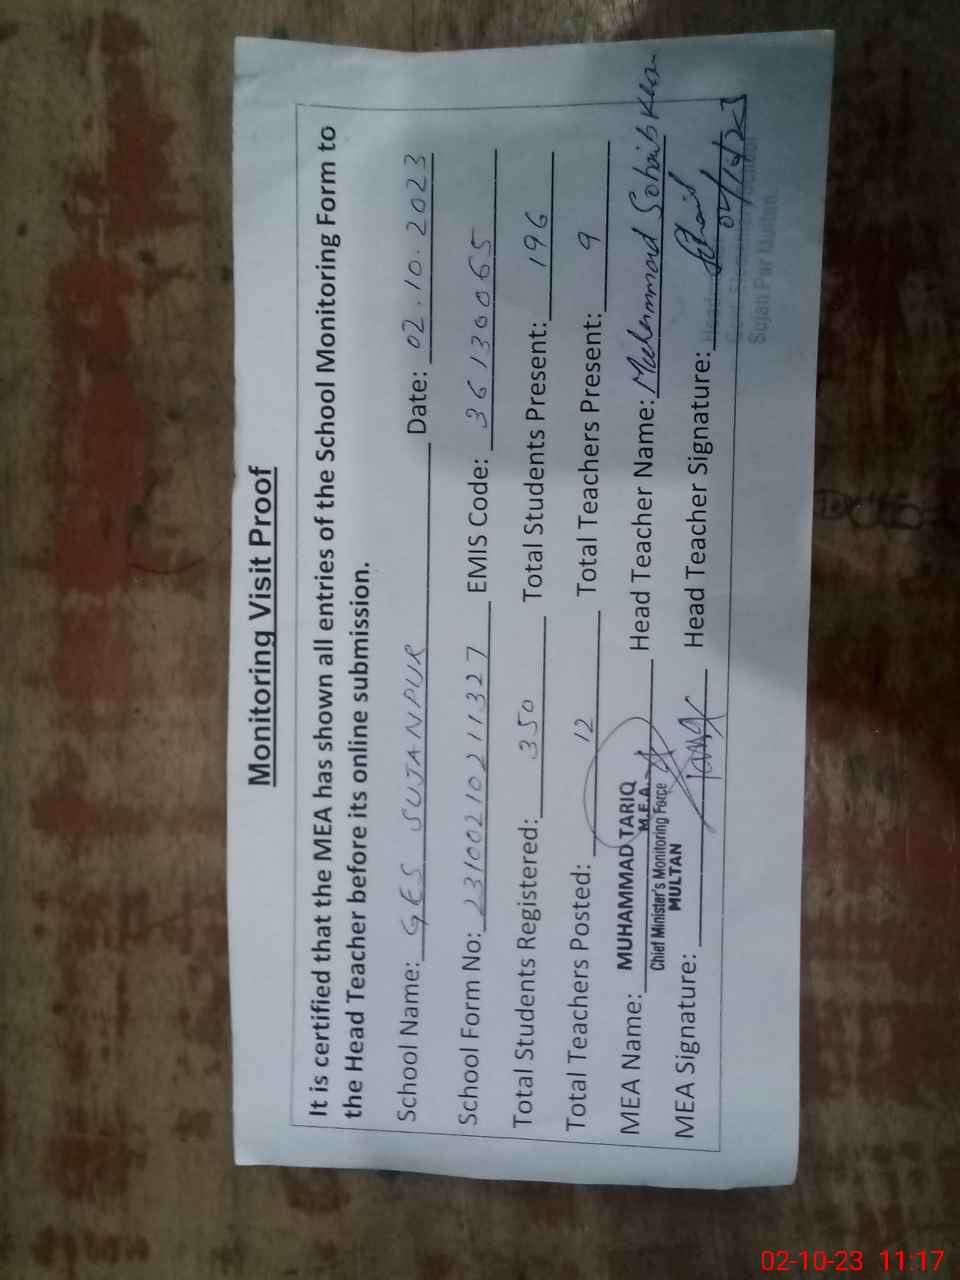 Monitoring Visit Proof
It is certified that the MEA has shown all entries of the School Monitoring Form to
the Head Teacher before its online submission.
School Name: GES SUJANPUR Date: 02.10.2023
School Form No: 23100210211327 EMIS Code: 36130065
Total Students Registered: 350 Total Students Present: 196
Total Teachers Posted: 12 Total Teachers Present: 9
MEA Name: MUHAMMAD TARIQ Head Teacher Name: Muhammad Sohaib Khan
M.E.A.
Chief Minister's Monitoring Force
MULTAN
MEA Signature: Tariq Head Teacher Signature: Sohaib
Sujan Pur Multan
02-10-23 11:17